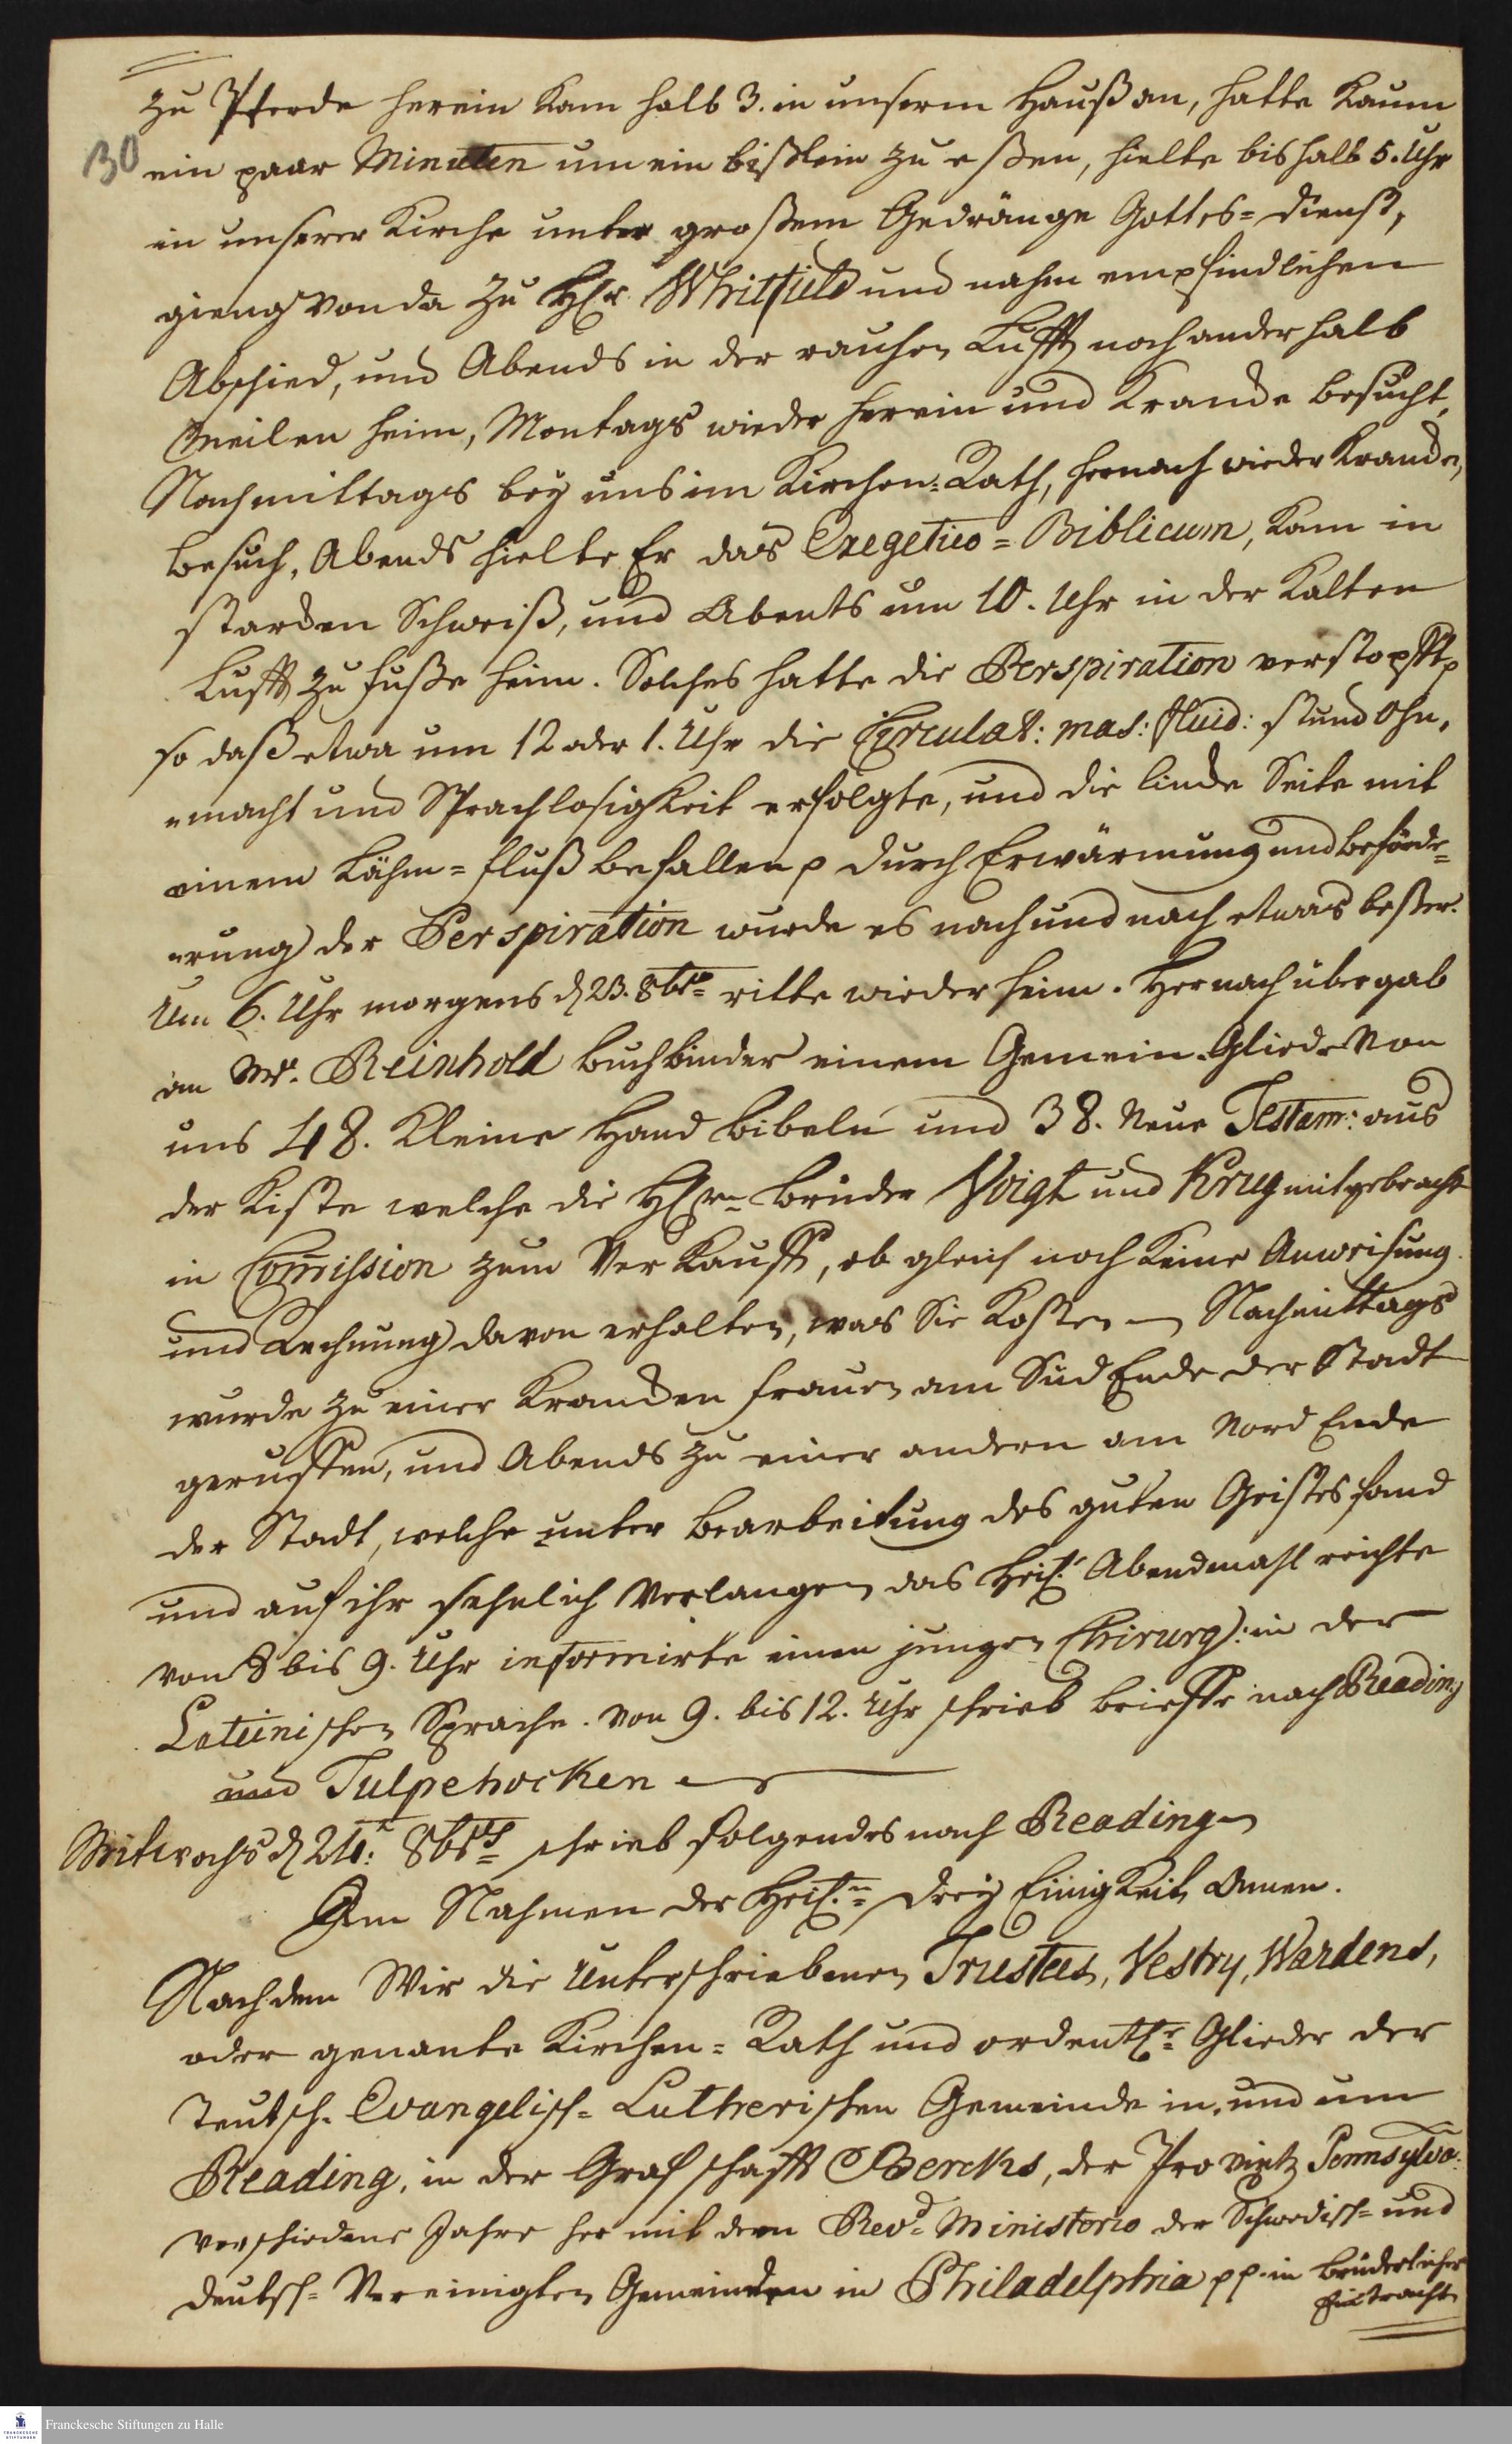 zu Pferde herein kam halb 3. in unserm Hauß an, hatte kaum
130
ein paar Minuten um ein bißlein zu eßen, hielte bis halb 5. Uhr
in unserer Kirche unter großem Gedränge Gottes=dienst,
gieng von da zu HEr Whitfield und nahm empfindlichen
Abschied, und Abends in der rauhen Lufft noch anderhalb
Meilen heim, Montags wieder herein und Krancke besucht,
Nachmittags bey uns im Kirchen=Rath, hernach wieder Krancken
besuch, Abends hielte Er das Exegetico=Biblicum, kam in
starcken Schweiß, und Abents um 10. Uhr in der kalten
Lufft zu fuße heim. Solches hatte die Perspiration verstopfft
so daß etwa um 12 oder 1. Uhr die Circulat: mas: fluid: stund Ohn,
macht und Sprachlosigkeit erfolgte, und die lincke Seite mit
einem Lähm=fluß befallen p durch Erwärmung und beförde=
rung der Perspiration wurde es nach und nach etwas beßer.
Um 6. Uhr morgens d 23. 8br ritte wieder heim. Hernach übergab
an Mr. Reinhold buchbinder einem Gemein Gliede von
uns 48. kleine Hand bibeln und 38. Neue Testam: aus
der Kiste welche die HErrn brüder Voigt und Krug mitgebracht
in Comission zum Verkauff, ob gleich noch keine Anweisung
und Rechnung davon erhalten, was Sie kosten Nachmittags
wurde zu einer Krancken frauen am Süd Ende der Stadt
geruffen, und Abends zu einer andern am Nord Ende
der Stadt, welche unter bearbeitung des guten Geistes fand
und auf ihr sehnlich Verlangen das Heil: Abendmahl reichte
von 8 bis 9. Uhr informirte einen jungen Chirurg: in der
Lateinischen Sprache. von 9. bis 12. Uhr schrieb brieffe nach Reading
und Tulpehocken
Mitwochs d 24: 8br schrieb folgendes nach Reading
Im Nahmen der Heil: Drey Einigkeit Amen.
Nachdem Wir die Unterschriebenen Trustees, Vestry, Wardens,
oder genante Kirchen=Rath und ordentl: Glieder der
Teutsch=Evangelisch=Lutherischen Gemeinde in, und um
Reading, in der Grafschafft Bercks, der Provintz Pennsylva:
verschiedene Jahre her mit dem Revd Ministerio der Schwedisch= und
deutsch=Vereinigten Gemeinden in Philadelphia pp. in brüderlicher
Eintracht
Franckesche Stiftungen zu Halle